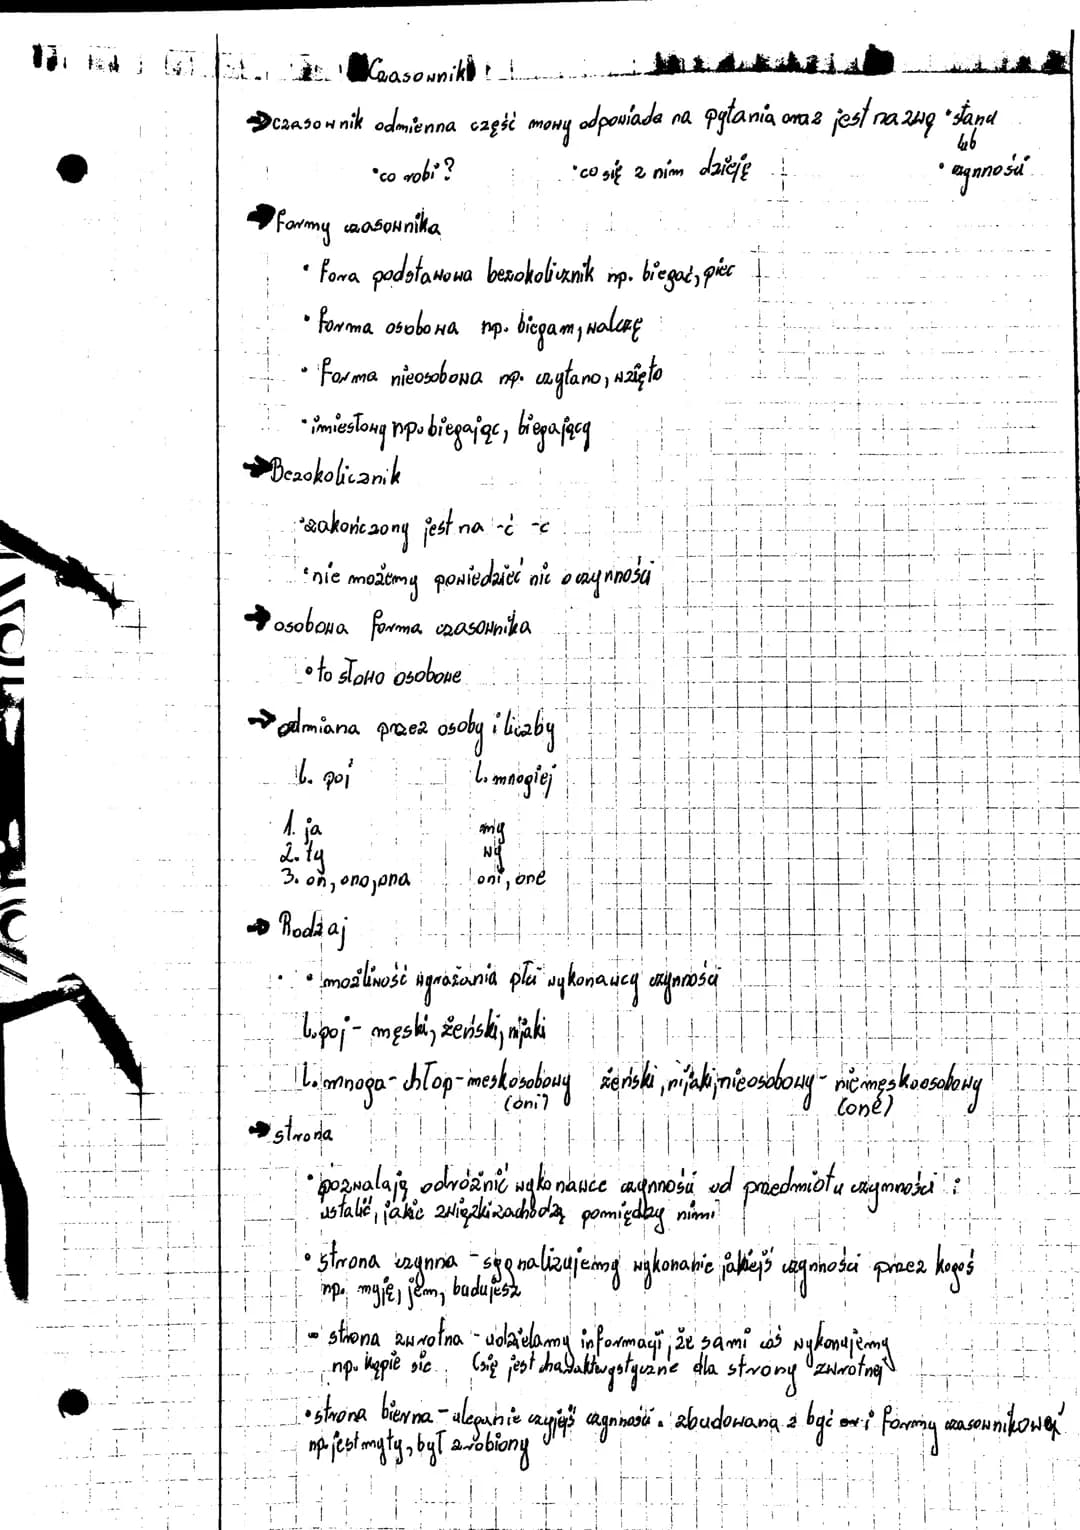 Czasownik
→ czasownik odmienna część mowy odpowiada na pytania oraz jest nazwą • stanu
lub
• co robi? • co się z nim dzieję • czynności
→ formy czasownika
• Fora podstawowa bezokolicznik np. biegać, piec
• forma osobowa np. biegam, walczę
• forma nieosobowa np. czytano, wzięto
• imiesłowy np. biegając, biegający
→ Bezokolicznik
• zakończony jest na -ć -c
• nie możemy powiedzieć nic o czynności
→ osobowa forma czasownika
• to słowo osobowe
→ odmiana przez osoby i liczby
l. poj l. mnogiej
1. ja my
2. ty wy
3. on, ono, ona oni, one
→ Rodzaj
• możliwość wyrażania płci wykonawcy czynności
l. poj - męski, żeński, nijaki
l. mnoga - chłop - meskosobowy żeński, nijaki, nieosobowy - niemęskoosobowy
(oni) (one)
→ strona
• pozwalają odróżnić wykonawce czynności od przedmiotu czynności i
ustalić, jakie związki zachodzą pomiędzy nimi
• strona czynna - sygnalizujemy wykonanie jakiejś czynności przez kogoś
np. myję, jem, budujesz
• strona zwrotna - udzielamy informacji, że sami coś wykonujemy
np. kąpie sie (się jest charakterystyczne dla strony zwrotnej
• strona bierna - uleganie czyjejś czynności. zbudowana z być i formy czasownikowej
np. jest myty, był zrobiony